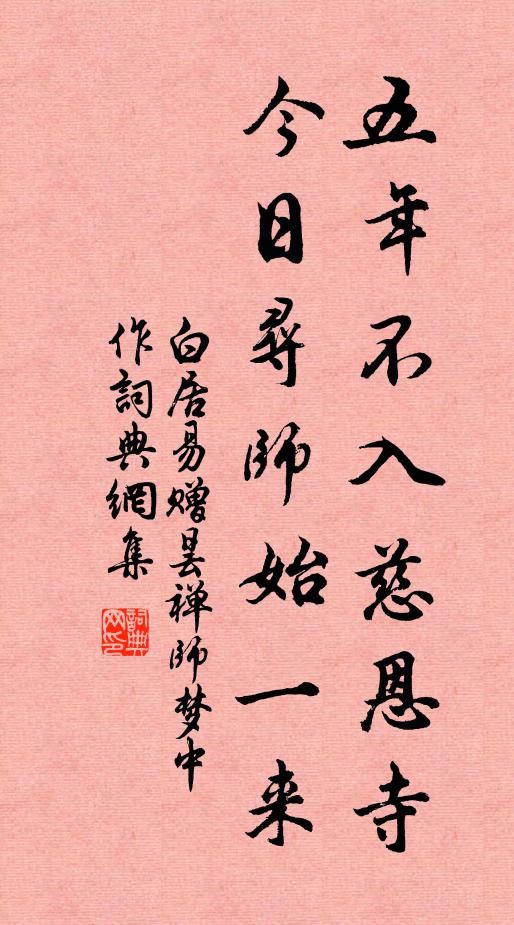 五年不入慈恩寺
今日尋師始一来
白居易赠昙禅師梦中
作詞典網集
詞典网印